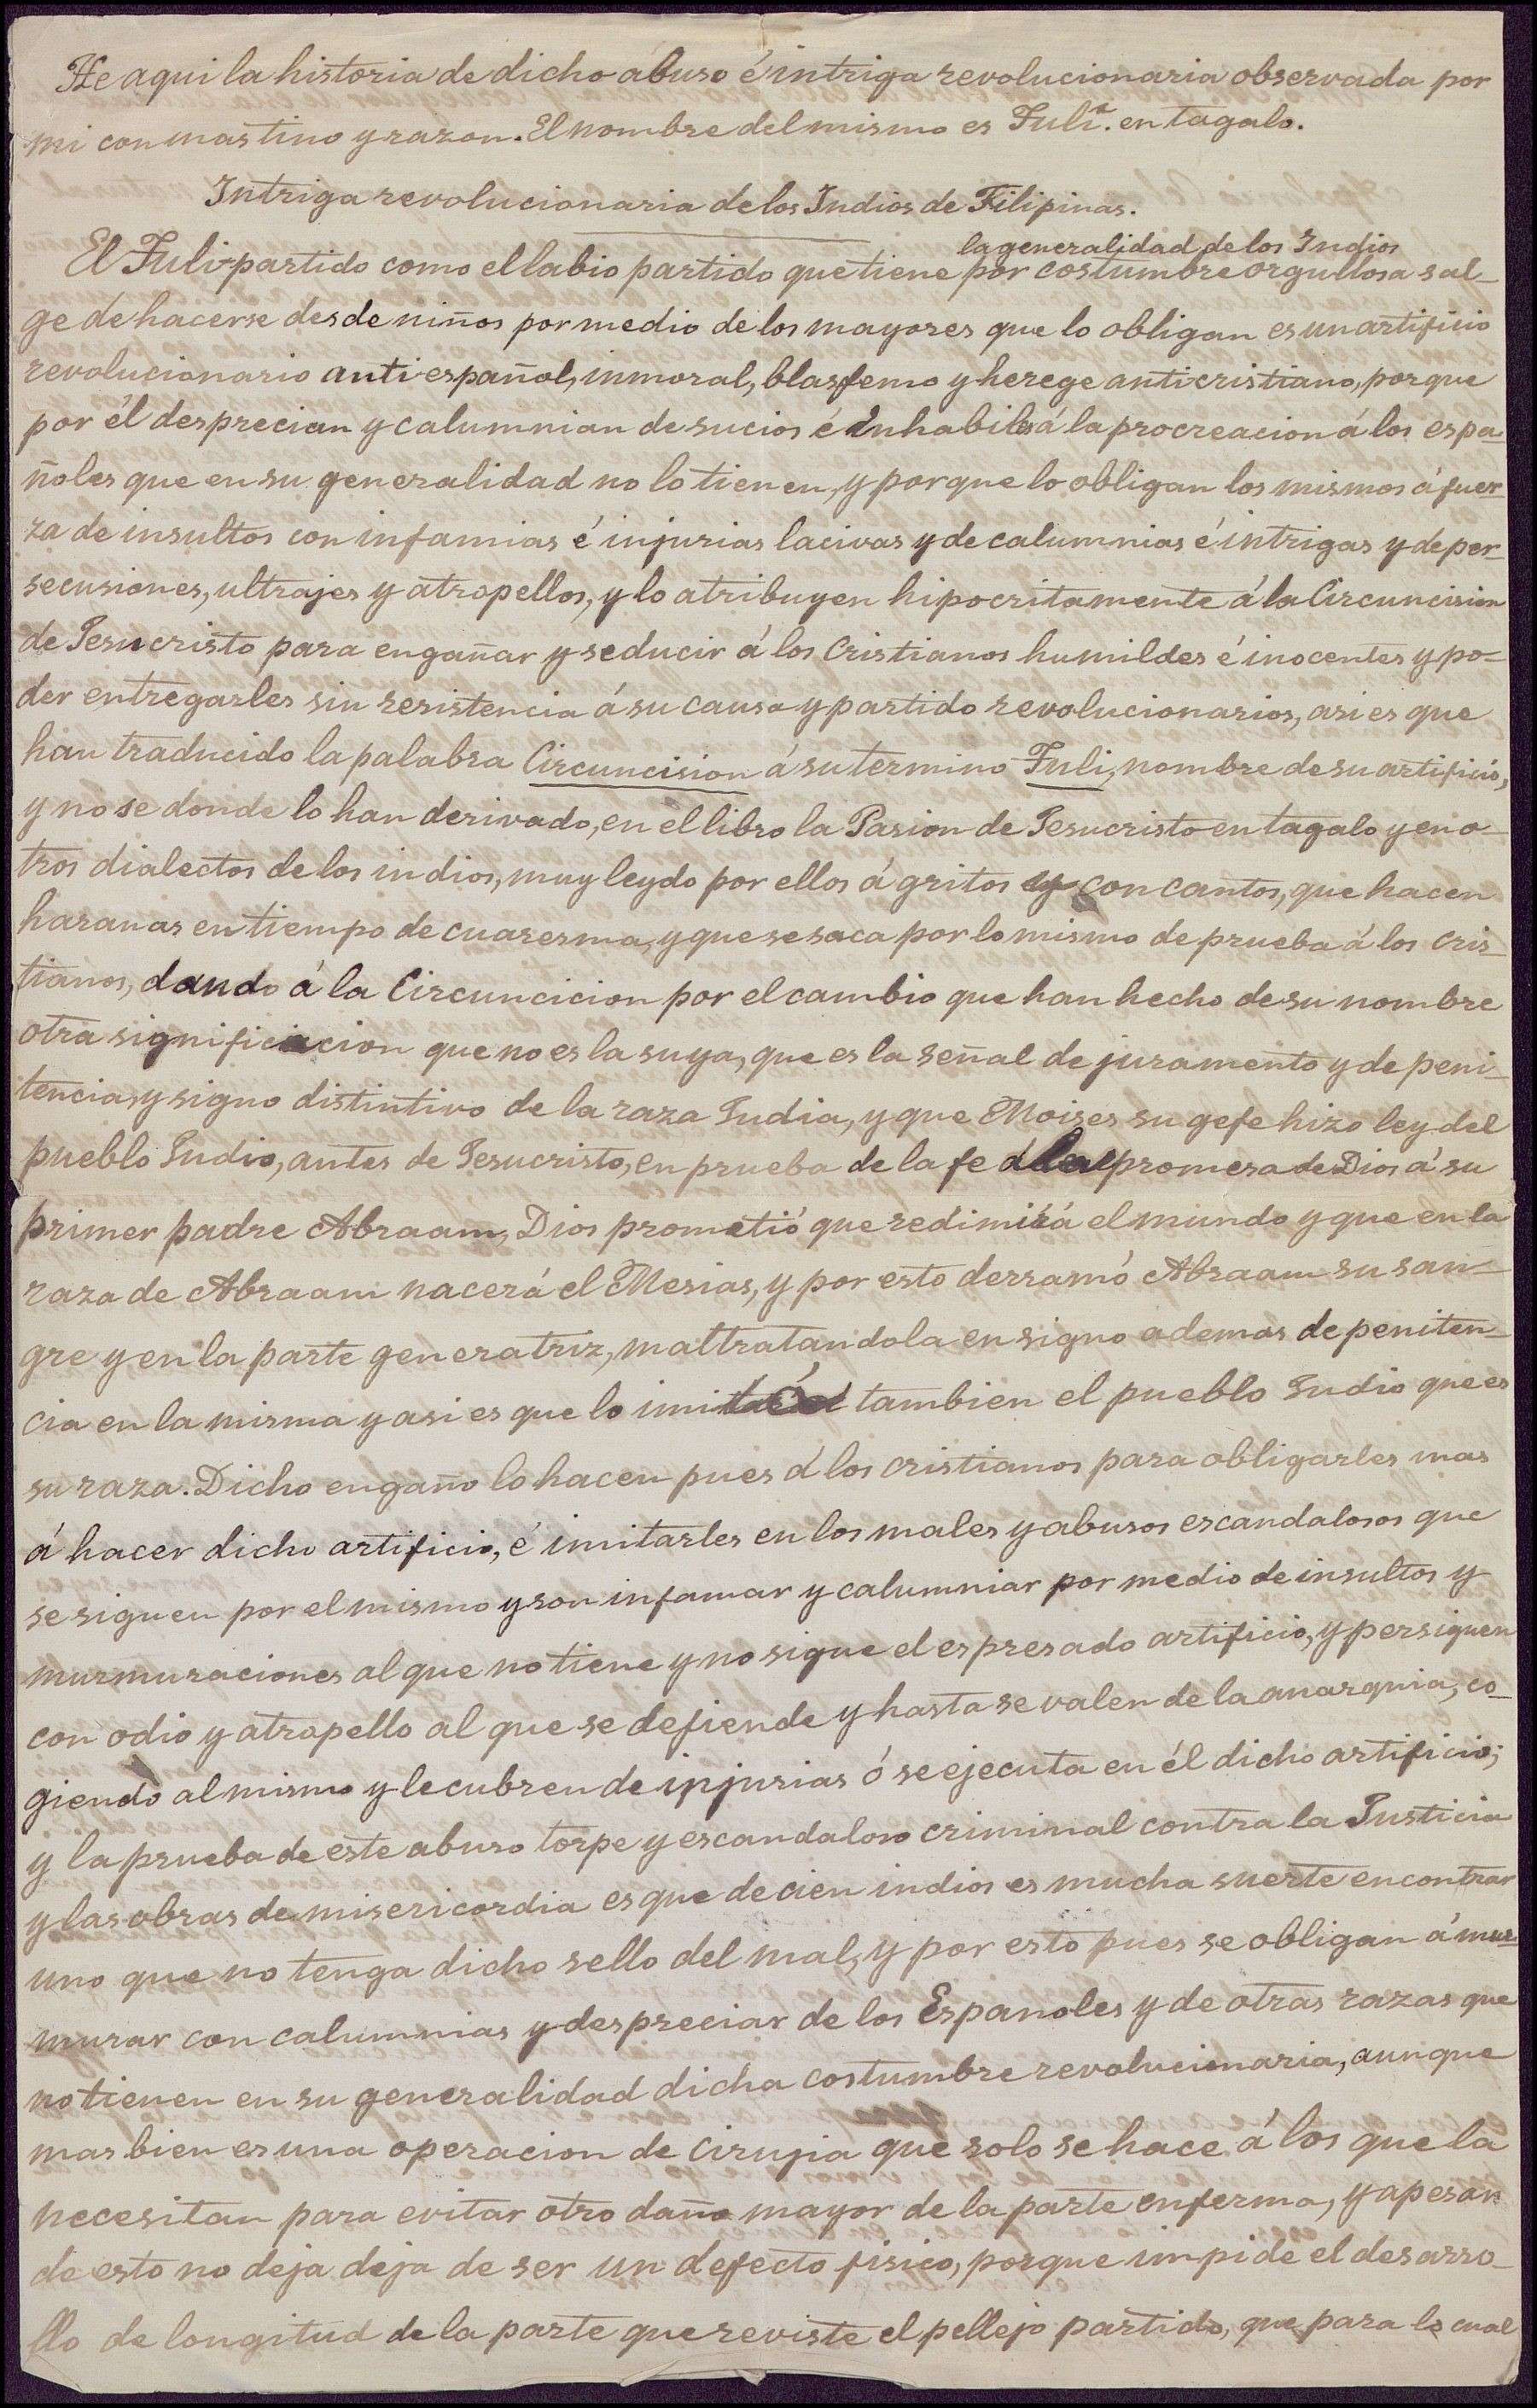 He aqui la historia de dicho abuso é intriga revolucionaria observada por
mi con mas tino y razon. El nombre del mismo es Tulì. en tagalo.
Intriga revolucionaria de los Indios de Filipinas.
la generalidad de los Indios
El Tuli partido como el labio partido que tiene por costumbre orgullosa sal-
ge de hacerse desde niños por medio de los mayores que lo obligan es un artificio
revolucionario anti español, inmoral, blasfemo y herege anticristiano, porque
por él desprecian y calumnian de sucios é inhabiles á la procreacion á los espa-
ñoles que en su generalidad no lo tienen, y porque lo obligan los mismos á fuer-
za de insultos con infamias é injurias lacivas y de calumnias é intrigas y de per-
secusiones, ultrajes y atropellos, y lo atribuyen hipocritamente á la Circuncision
de Jesucristo para engañar y seducir á los Cristianos humildes é inocentes y po-
der entregarles sin resistencia á su causa y partido revolucionarios, asi es que
han traducido la palabra Circuncision á su termino Tuli, nombre de su artificio,
y no se donde lo han derivado, en el libro la Pasion de Jesucristo en tagalo y en o-
tros dialectos de los indios, muy leydo por ellos á gritos y con cantos, que hacen
haranas en tiempo de cuaresma, y que se saca por lo mismo de prueba á los cris-
tianos, dando á la Circuncicion por el cambio que han hecho de su nombre
otra significacion que no es la suya, que es la señal de juramento y de peni-
tencia, y signo distintivo de la raza Judia, y que Moises su gefe hizo ley del
pueblo Judio, antes de Jesucristo, en prueba de la fe de la promesa de Dios á su
primer padre Abraam, Dios prometió que redimirá el mundo y que en la
raza de Abraam nacerá el Mesias, y por esto derramó Abraam su san-
gre y en la parte generatriz, maltratandola en signo ademas de peniten-
cia en la misma y asi es que lo tambien el pueblo Judio que es
su raza. Dicho engaño lo hacen pues á los cristianos para obligarles mas
á hacer dicho artificio, é imitarles en los males y abusos escandalosos que
se siguen por el mismo y son infamar y calumniar por medio de insultos y
murmuraciones al que no tiene y no sigue el espresado artificio, y persiguen
con odio y atropello al que se defiende y hasta se valen de la anarquia, co-
giendo al mismo y le cubren de injurias ó se ejecuta en él dicho artificio;
y la prueba de este abuso torpe y escandaloso criminal contra la Justicia
y las obras de misericordia es que de cien indios es mucha suerte encontrar
uno que no tenga dicho sello del mal, y por esto pues se obligan á mur-
murar con calumnias y despreciar de los Españoles y de otras razas que
no tienen en su generalidad dicha costumbre revolucionaria, aunque
mas bien es una operacion de cirujia que solo se hace á los que la
necesitan para evitar otro daño mayor de la parte enferma, y apesar
de esto no deja deja de ser un defecto fisico, porque impide el desarro-
llo de longitud de la parte que reviste el pellejo partido, que para lo cual